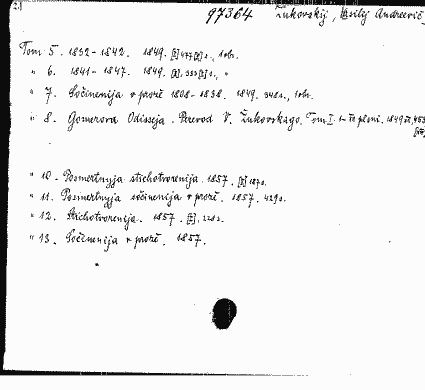 2.)
97364 Žukovskij, Vasilij Andreevič,
Tom 5. 1832-1842. 1849. [2] 477 [2] s., 1 obr.
" 6. 1841-1847. 1849. [2], 353 [2] s., "
" 7. Sočinenija v prozě 1808-1838. 1849. 348 s., 1 obr.
" 8. Gomerova Odisseja. Perevod V. Žukovskago. Tom I. 1849
" 10. Posmertnyja stichotvorenija. 1857. [2] 187 s.
" 11. Posmertnyja sočinenija v prozě. 1857. 429 s.
" 12. Stichotvorenija. 1857. [2], 228 s.
" 13. Sočinenija v prozě. 1857.